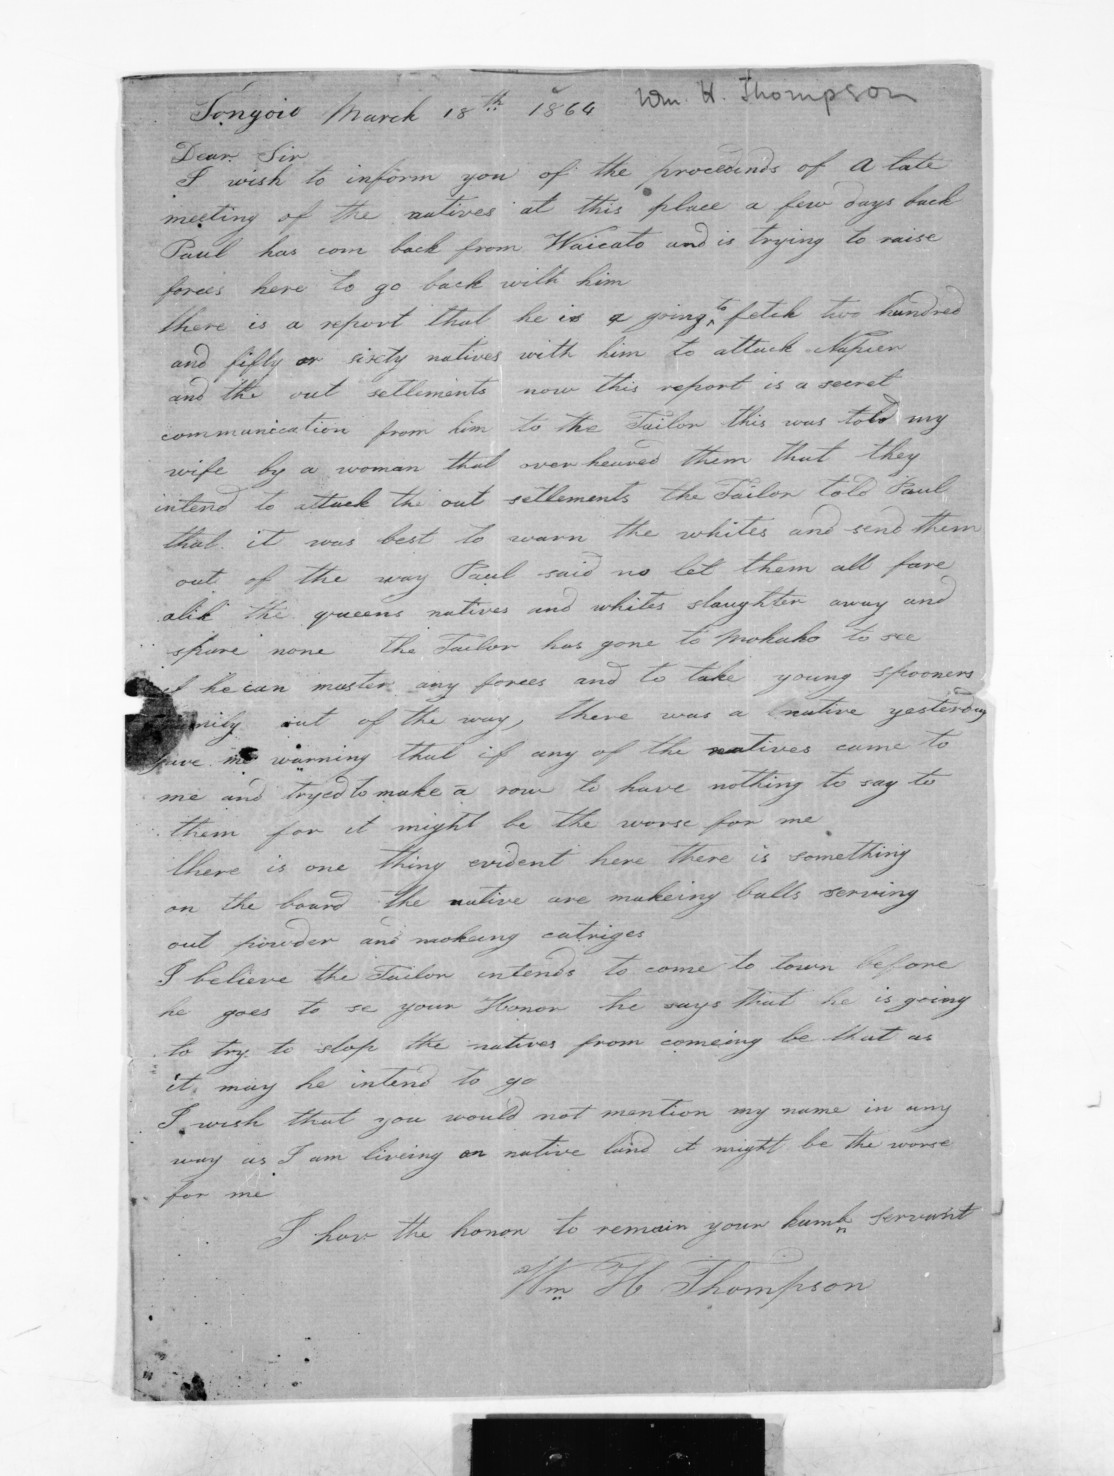 Wm. H. Thompson
Tongoio March 18th 1864
Dear Sir
I wish to inform you of the proceedinds of a late
meeting of the natives at this place a few days back
Paul has com back from Waicato and is trying to raise
forces here to go back with him
there is a report that he is a going to fetch two hundred
and fifty or sixty natives with him to attack Napier
and the out setlements now this report is a secret
communication from him to the Tailor this was told my
wife by a woman that over heared them that they
intend to attack the out setlements the Tailor told Paul
that it was best to warn the whites and send them
out of the way Paul said no let them all fare
alik the queens natives and whites slaughter away and
spare none the Tailor has gone to Mohaka to see
if he can muster any forces and to take young spooners
out of the way, there was a native yesterday
gave me warning that if any of the natives came to
me and tryed to make a row to have nothing to say to
them for it might be the worse for me
there is one thing evident here there is something
on the board the native are makeing balls serving
out powder and makeing catriges
I believe the Tailor intends to come to town before
he goes to se your Honor he says that he is going
to try to stop the natives from comeing be that as
it may he intend to go
I wish that you would not mention my name in any
way as I am liveing on native land it might be the worse
for me
I hav the honor to remain your humb servant
Wm H Thompson